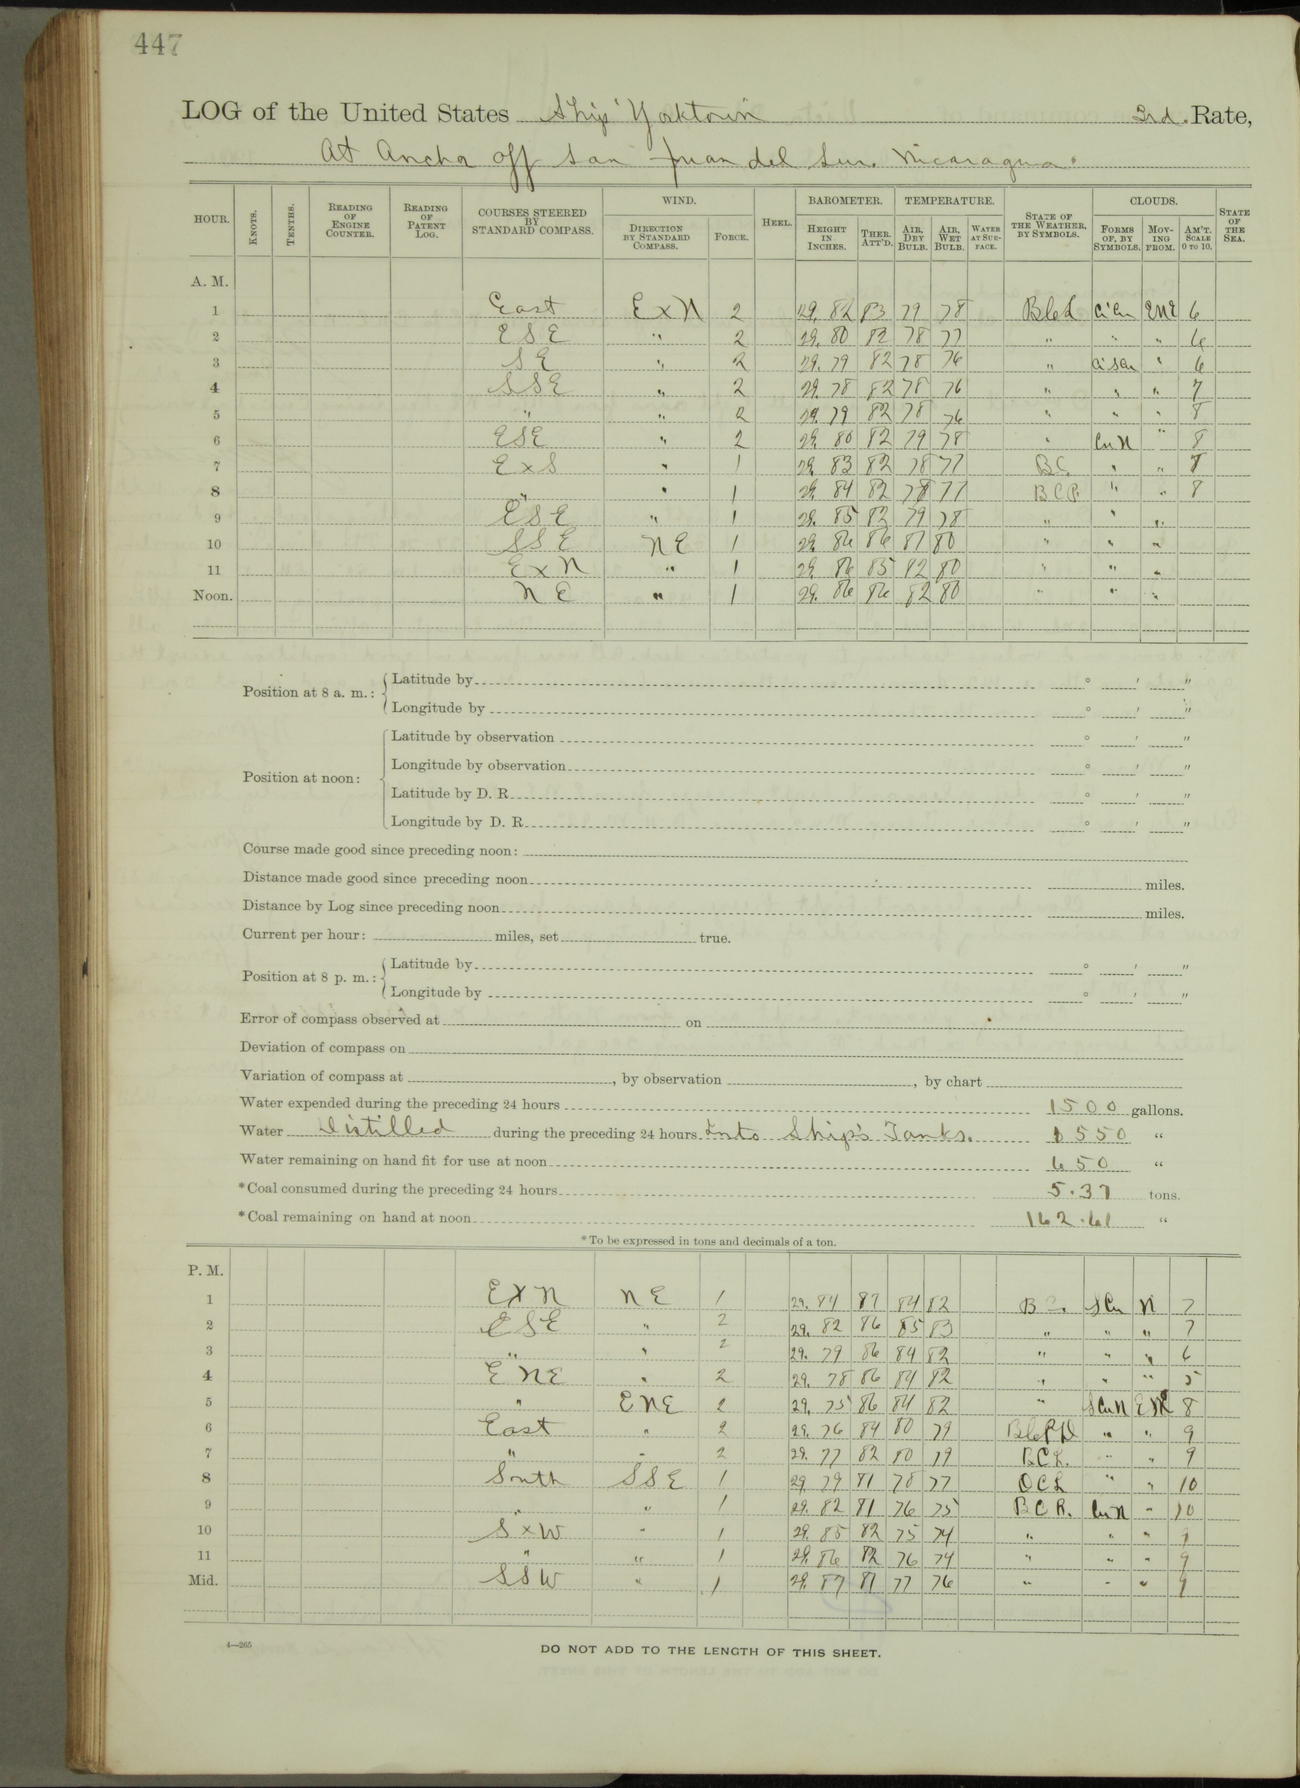 447
LOG of the United States Ship Yorktown 3rd. Rate,
At Anchor off San Juan del Sur. Nicaragua.
HOUR. KNOTS. TENTHS. READING OF ENGINE COUNTER. READING OF PATENT LOG. COURSES STEERED BY STANDARD COMPASS. WIND. DIRECTION BY STANDARD COMPASS. FORCE. HEEL. BAROMETER. HEIGHT IN INCHES. THER. ATT'D. TEMPERATURE. AIR, DRY BULB. AIR, WET BULB. WATER AT SURFACE. STATE OF THE WEATHER, BY SYMBOLS. CLOUDS. FORMS OF, BY SYMBOLS. MOVING FROM. AM'T. SCALE 0 TO 10. STATE OF THE SEA.
A. M.
1 East ExN 2 29. 82 83 79 78 BlcL Ci Cu ENE 6
2 ESE " 2 29. 80 82 78 77 " " " 6
3 SE " 2 29. 79 82 78 76 " Ci S Cu " 6
4 SSE " 2 29. 78 82 78 76 " " " 7
5 " " 2 29. 79 82 78 76 " " " 8
6 ESE " 2 29. 80 82 79 78 " Cu N " 8
7 ExS " 1 29. 83 82 78 77 BC. " " 8
8 " " 1 29. 84 82 78 77 BCP. " " 8
9 ESE " 1 29. 85 82 79 78 " " "
10 SSE NE 1 29. 86 86 81 80 " " "
11 ExN " 1 29. 86 85 82 80 " " "
Noon. NE " 1 29. 86 86 82 80 " " "
Position at 8 a. m.: Latitude by ° ' "
Longitude by ° ' "
Position at noon: Latitude by observation ° ' "
Longitude by observation ° ' "
Latitude by D. R. ° ' "
Longitude by D. R. ° ' "
Course made good since preceding noon:
Distance made good since preceding noon miles.
Distance by Log since preceding noon miles.
Current per hour: miles, set true.
Position at 8 p. m.: Latitude by ° ' "
Longitude by ° ' "
Error of compass observed at on
Deviation of compass on
Variation of compass at , by observation , by chart
Water expended during the preceding 24 hours 1500 gallons.
Water Distilled during the preceding 24 hours Into Ship's Tanks. 1550 "
Water remaining on hand fit for use at noon 650 "
*Coal consumed during the preceding 24 hours 5.37 tons.
*Coal remaining on hand at noon 162.61 "
*To be expressed in tons and decimals of a ton.
P. M.
1 ExN NE 1 29. 84 87 84 82 B C. S Cu N 7
2 ESE " 2 29. 82 86 85 83 " " " 7
3 " " 2 29. 79 86 84 82 " " " 6
4 ENE " 2 29. 78 86 84 82 " " " 5
5 " ENE 2 29. 75 86 84 82 " S Cu N ENE 8
6 East " 2 29. 76 84 80 79 " " 9
7 " " 2 29. 77 82 80 79 BCL. " " 9
8 South SSE 1 29. 79 81 78 77 OCL " " 10
9 " " 1 29. 82 81 76 75 BCR. Cu N " 10
10 SxW " 1 29. 85 82 75 74 " " " 9
11 " " 1 29. 86 82 76 74 " " " 9
Mid. SSW " 1 29. 87 81 77 76 " " " 9
4—265
DO NOT ADD TO THE LENGTH OF THIS SHEET.